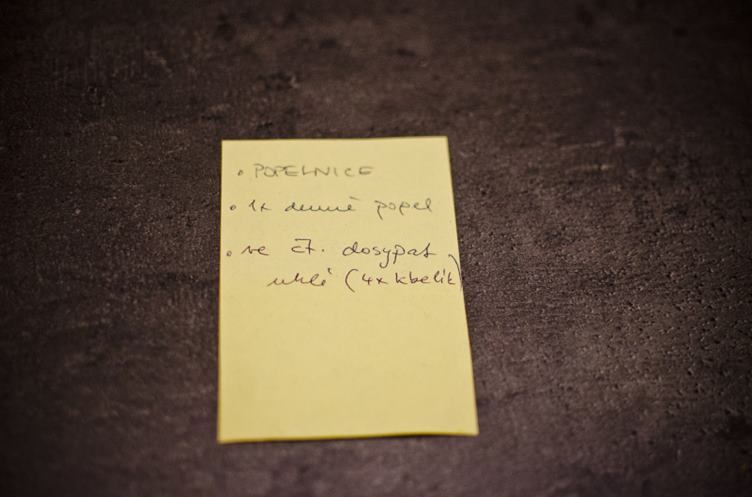 • POPELNICE
• 1x denně popel
• ve čt. dosypat
uhlí (4x kbelík)